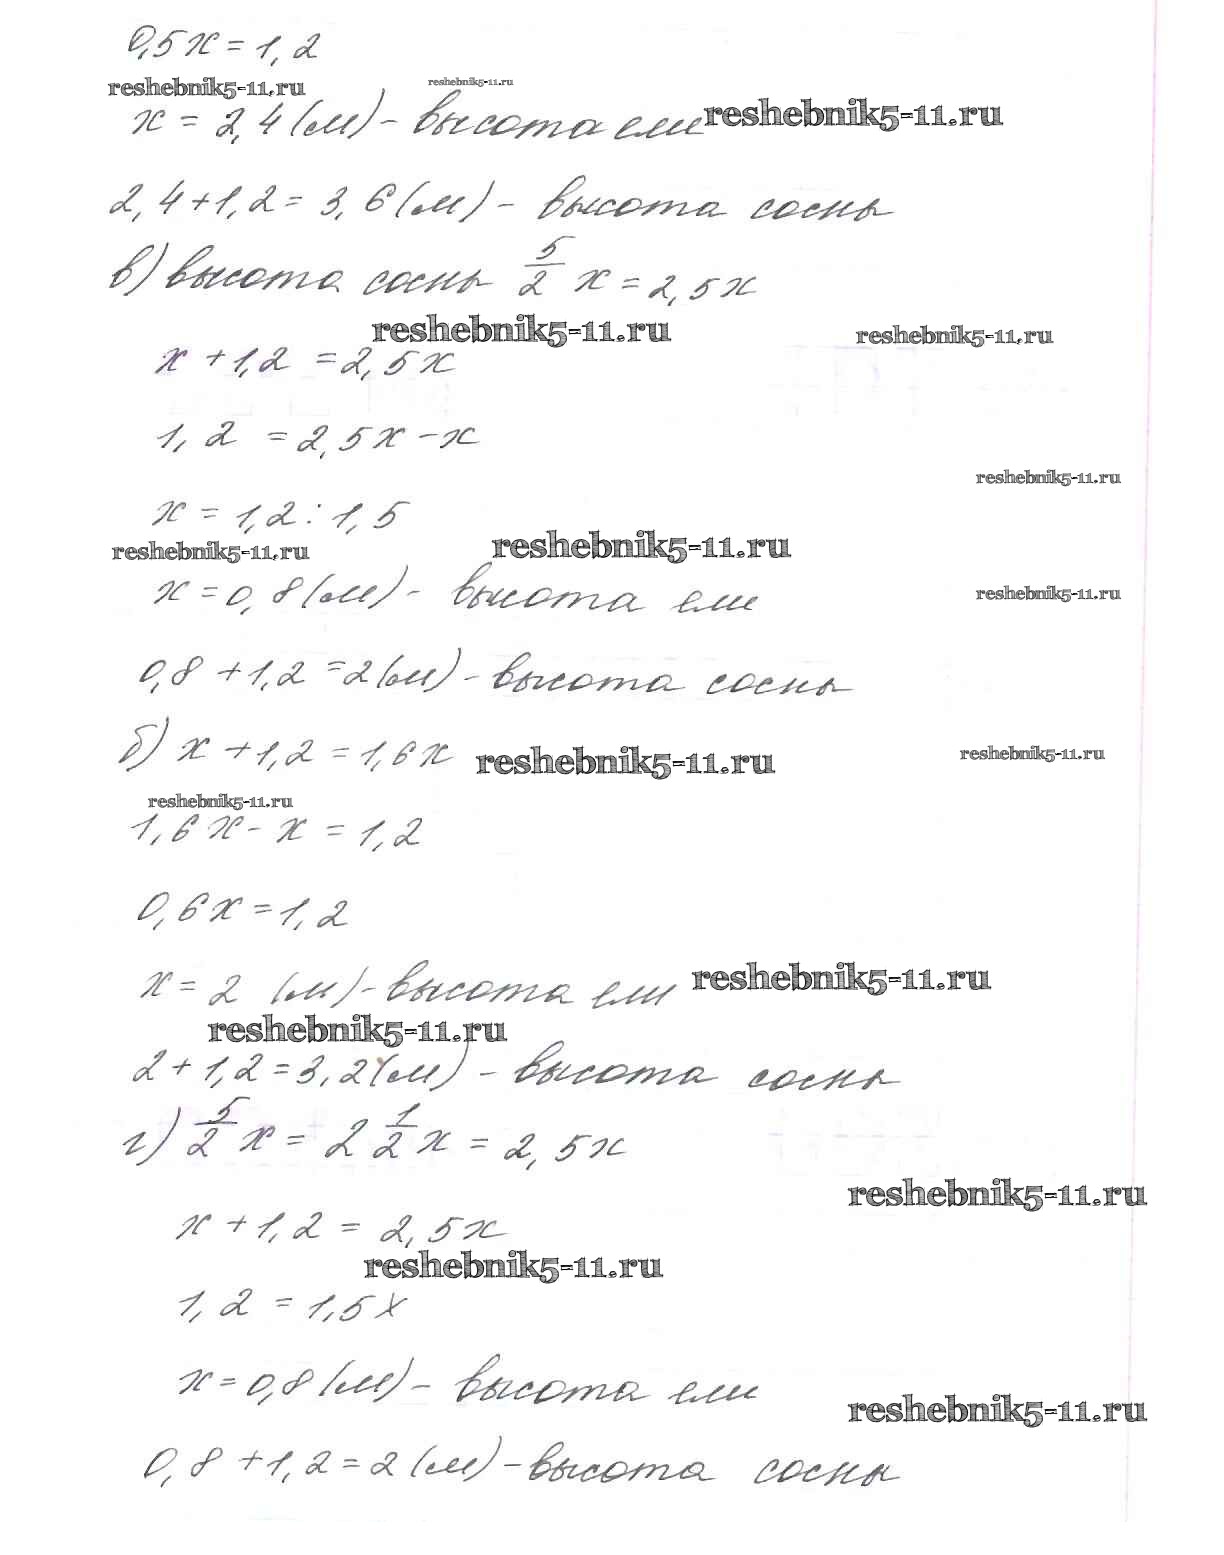 0,5x = 1,2
reshebnik5-11.ru reshebnik5-11.ru
x = 2,4 (м) - высота ели reshebnik5-11.ru
2,4 + 1,2 = 3,6 (м) - высота сосны
в) высота сосны 5/2 x = 2,5x
reshebnik5-11.ru reshebnik5-11.ru
x + 1,2 = 2,5x
1,2 = 2,5x - x
reshebnik5-11.ru
x = 1,2 : 1,5
reshebnik5-11.ru reshebnik5-11.ru
x = 0,8 (м) - высота ели reshebnik5-11.ru
0,8 + 1,2 = 2 (м) - высота сосны
б) x + 1,2 = 1,6x reshebnik5-11.ru reshebnik5-11.ru
reshebnik5-11.ru
1,6x - x = 1,2
0,6x = 1,2
x = 2 (м) - высота ели reshebnik5-11.ru
reshebnik5-11.ru
2 + 1,2 = 3,2 (м) - высота сосны
г) 5/2 x = 2 1/2 x = 2,5x
reshebnik5-11.ru
x + 1,2 = 2,5x
reshebnik5-11.ru
1,2 = 1,5x
x = 0,8 (м) - высота ели
reshebnik5-11.ru
0,8 + 1,2 = 2 (м) - высота сосны